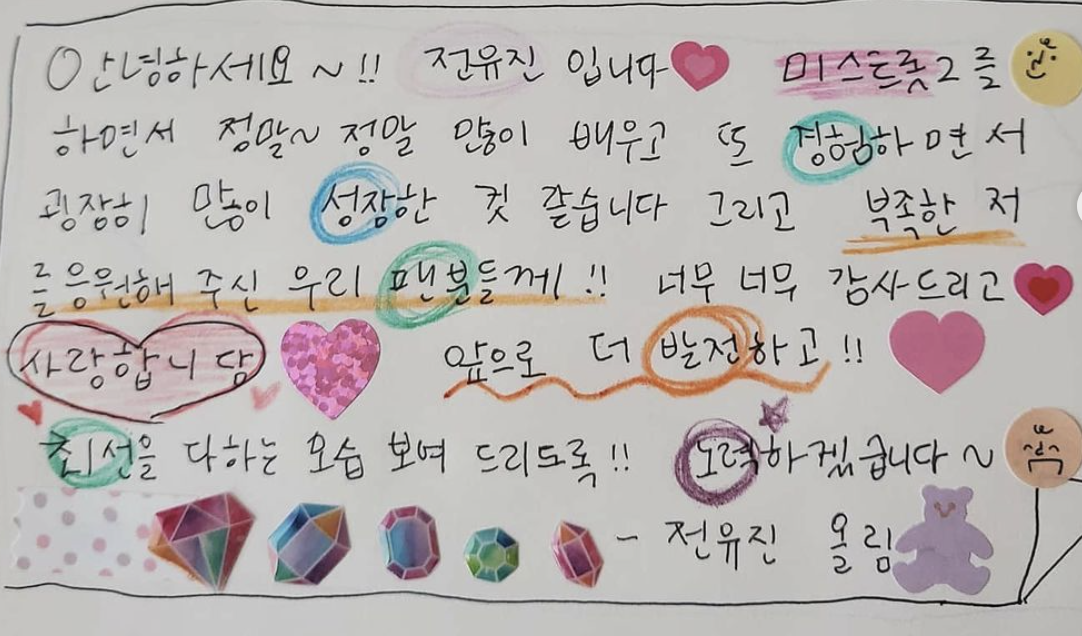 안녕하세요 ~!! 전유진 입니다 미스트롯2 를
하면서 정말~ 정말 많이 배우고 또 경험하면서
굉장히 많이 성장한 것 같습니다 그리고 부족한 저
를 응원해 주신 우리 팬분들께!! 너무 너무 감사드리고
사랑합니담 앞으로 더 발전하고!!
최선을 다하는 모습 보여 드리도록!! 노력하겠습니다 ~
- 전유진 올림